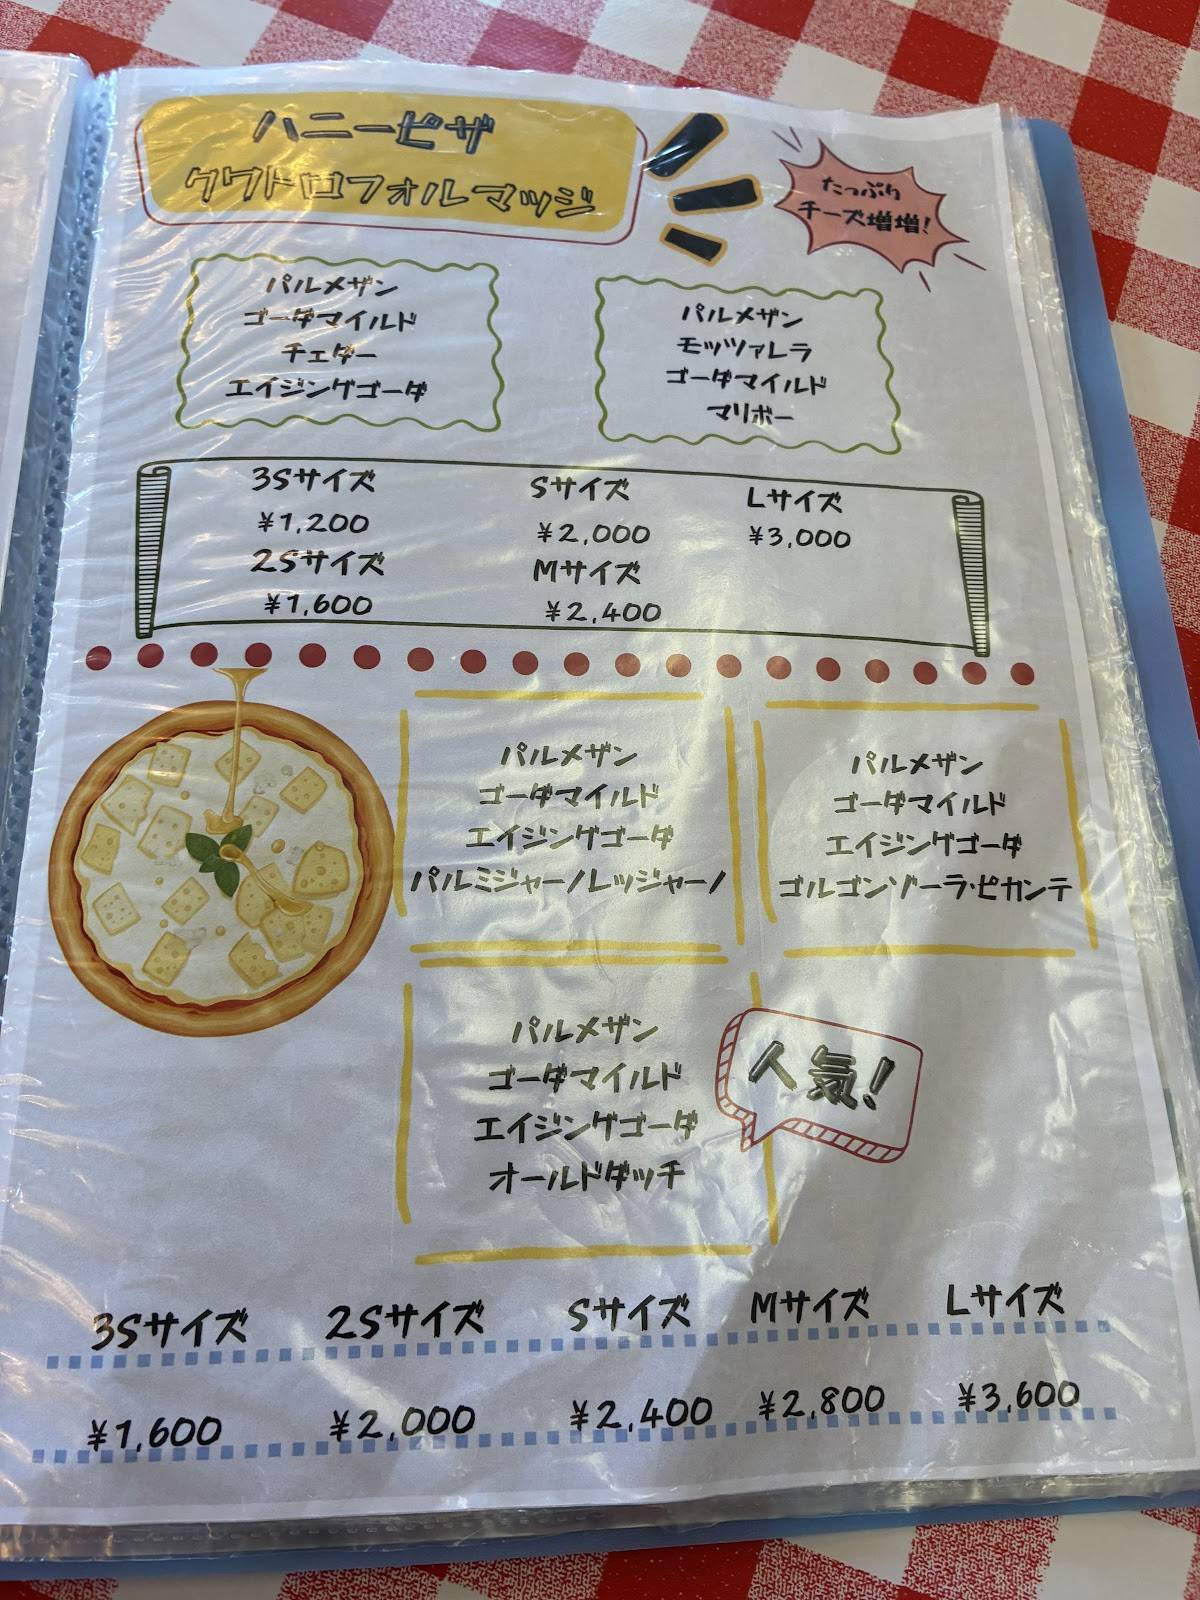 ハニーピザ
クワトロフォルマッジ
たっぷり
チーズ増増!
パルメザン
ゴーダマイルド
チェダー
エイジングゴーダ
パルメザン
モッツァレラ
ゴーダマイルド
マリボー
3Sサイズ
¥1,200
2Sサイズ
¥1,600
Sサイズ
¥2,000
Mサイズ
¥2,400
Lサイズ
¥3,000
パルメザン
ゴーダマイルド
エイジングゴーダ
パルミジャーノレッジャーノ
パルメザン
ゴーダマイルド
エイジングゴーダ
ゴルゴンゾーラ・ピカンテ
パルメザン
ゴーダマイルド
エイジングゴーダ
オールドダッチ
人気!
3Sサイズ 2Sサイズ Sサイズ Mサイズ Lサイズ
¥1,600 ¥2,000 ¥2,400 ¥2,800 ¥3,600